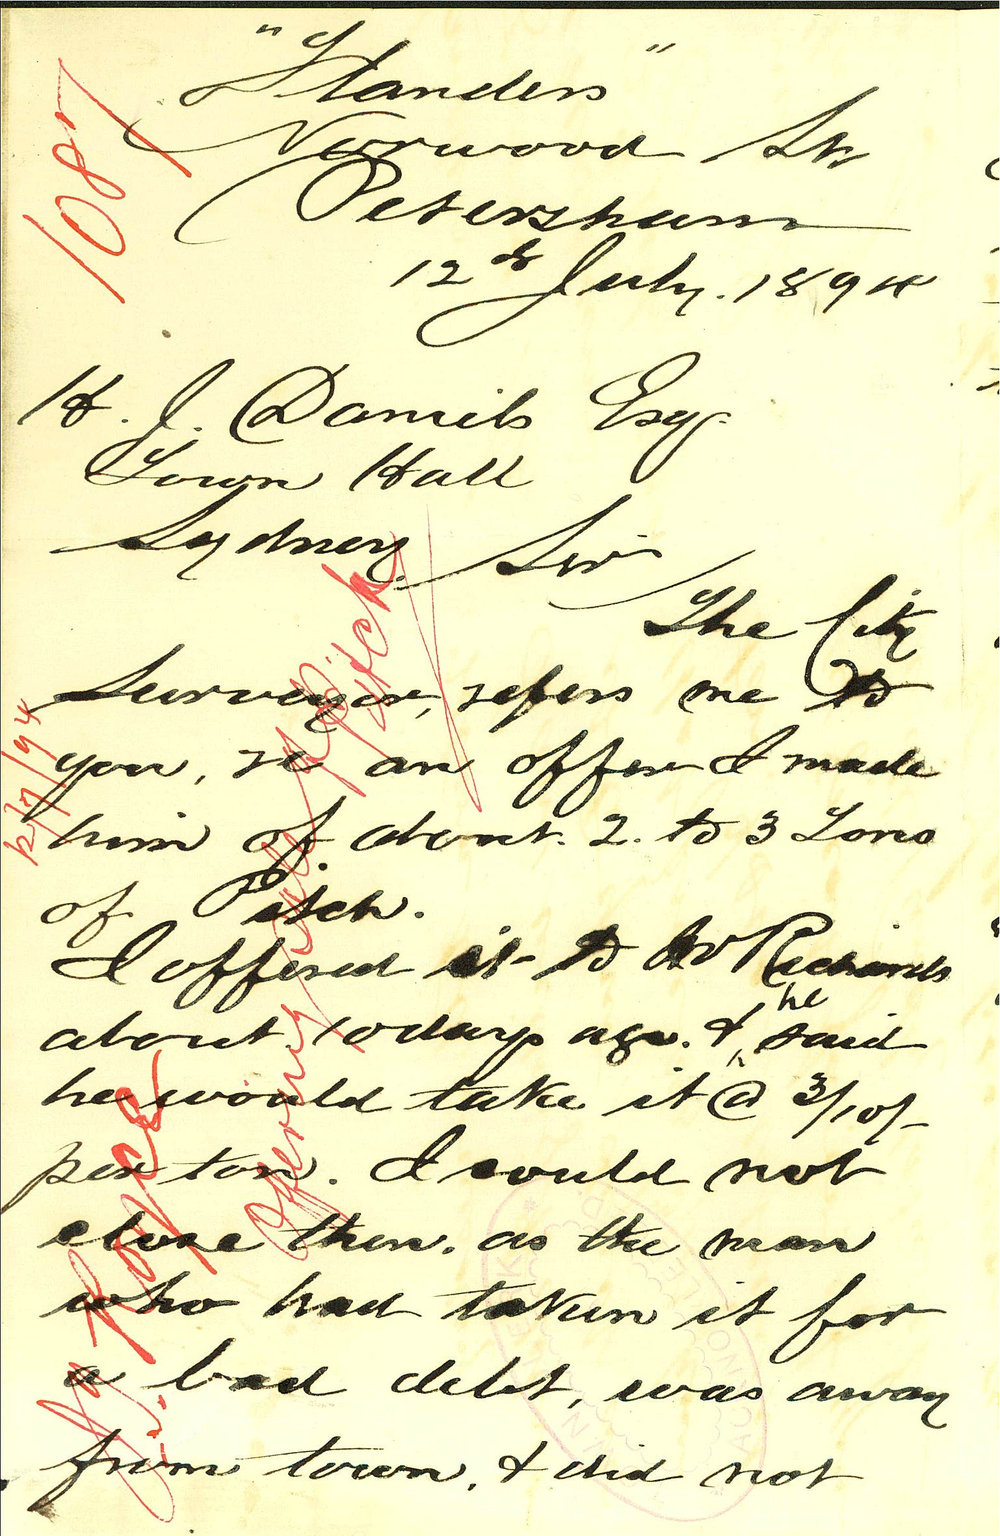 "Flanders"
Norwood St
Petersham
12th July. 1894
H. J. Daniels Esq.
Town Hall
Sydney.
Sir
The City
Surveyor, refers me to
you, re an offer I made
him of about. 2. to 3 Tons
of Pitch.
I offered it to Mr Richards
about 10 days ago. & he said
he would take it @ 3/10/-
per ton. I could not
close then. as the man
who had taken it for
a bad debt, was away
from town, & did not
1087
12/7/94
Offering to sell Pitch